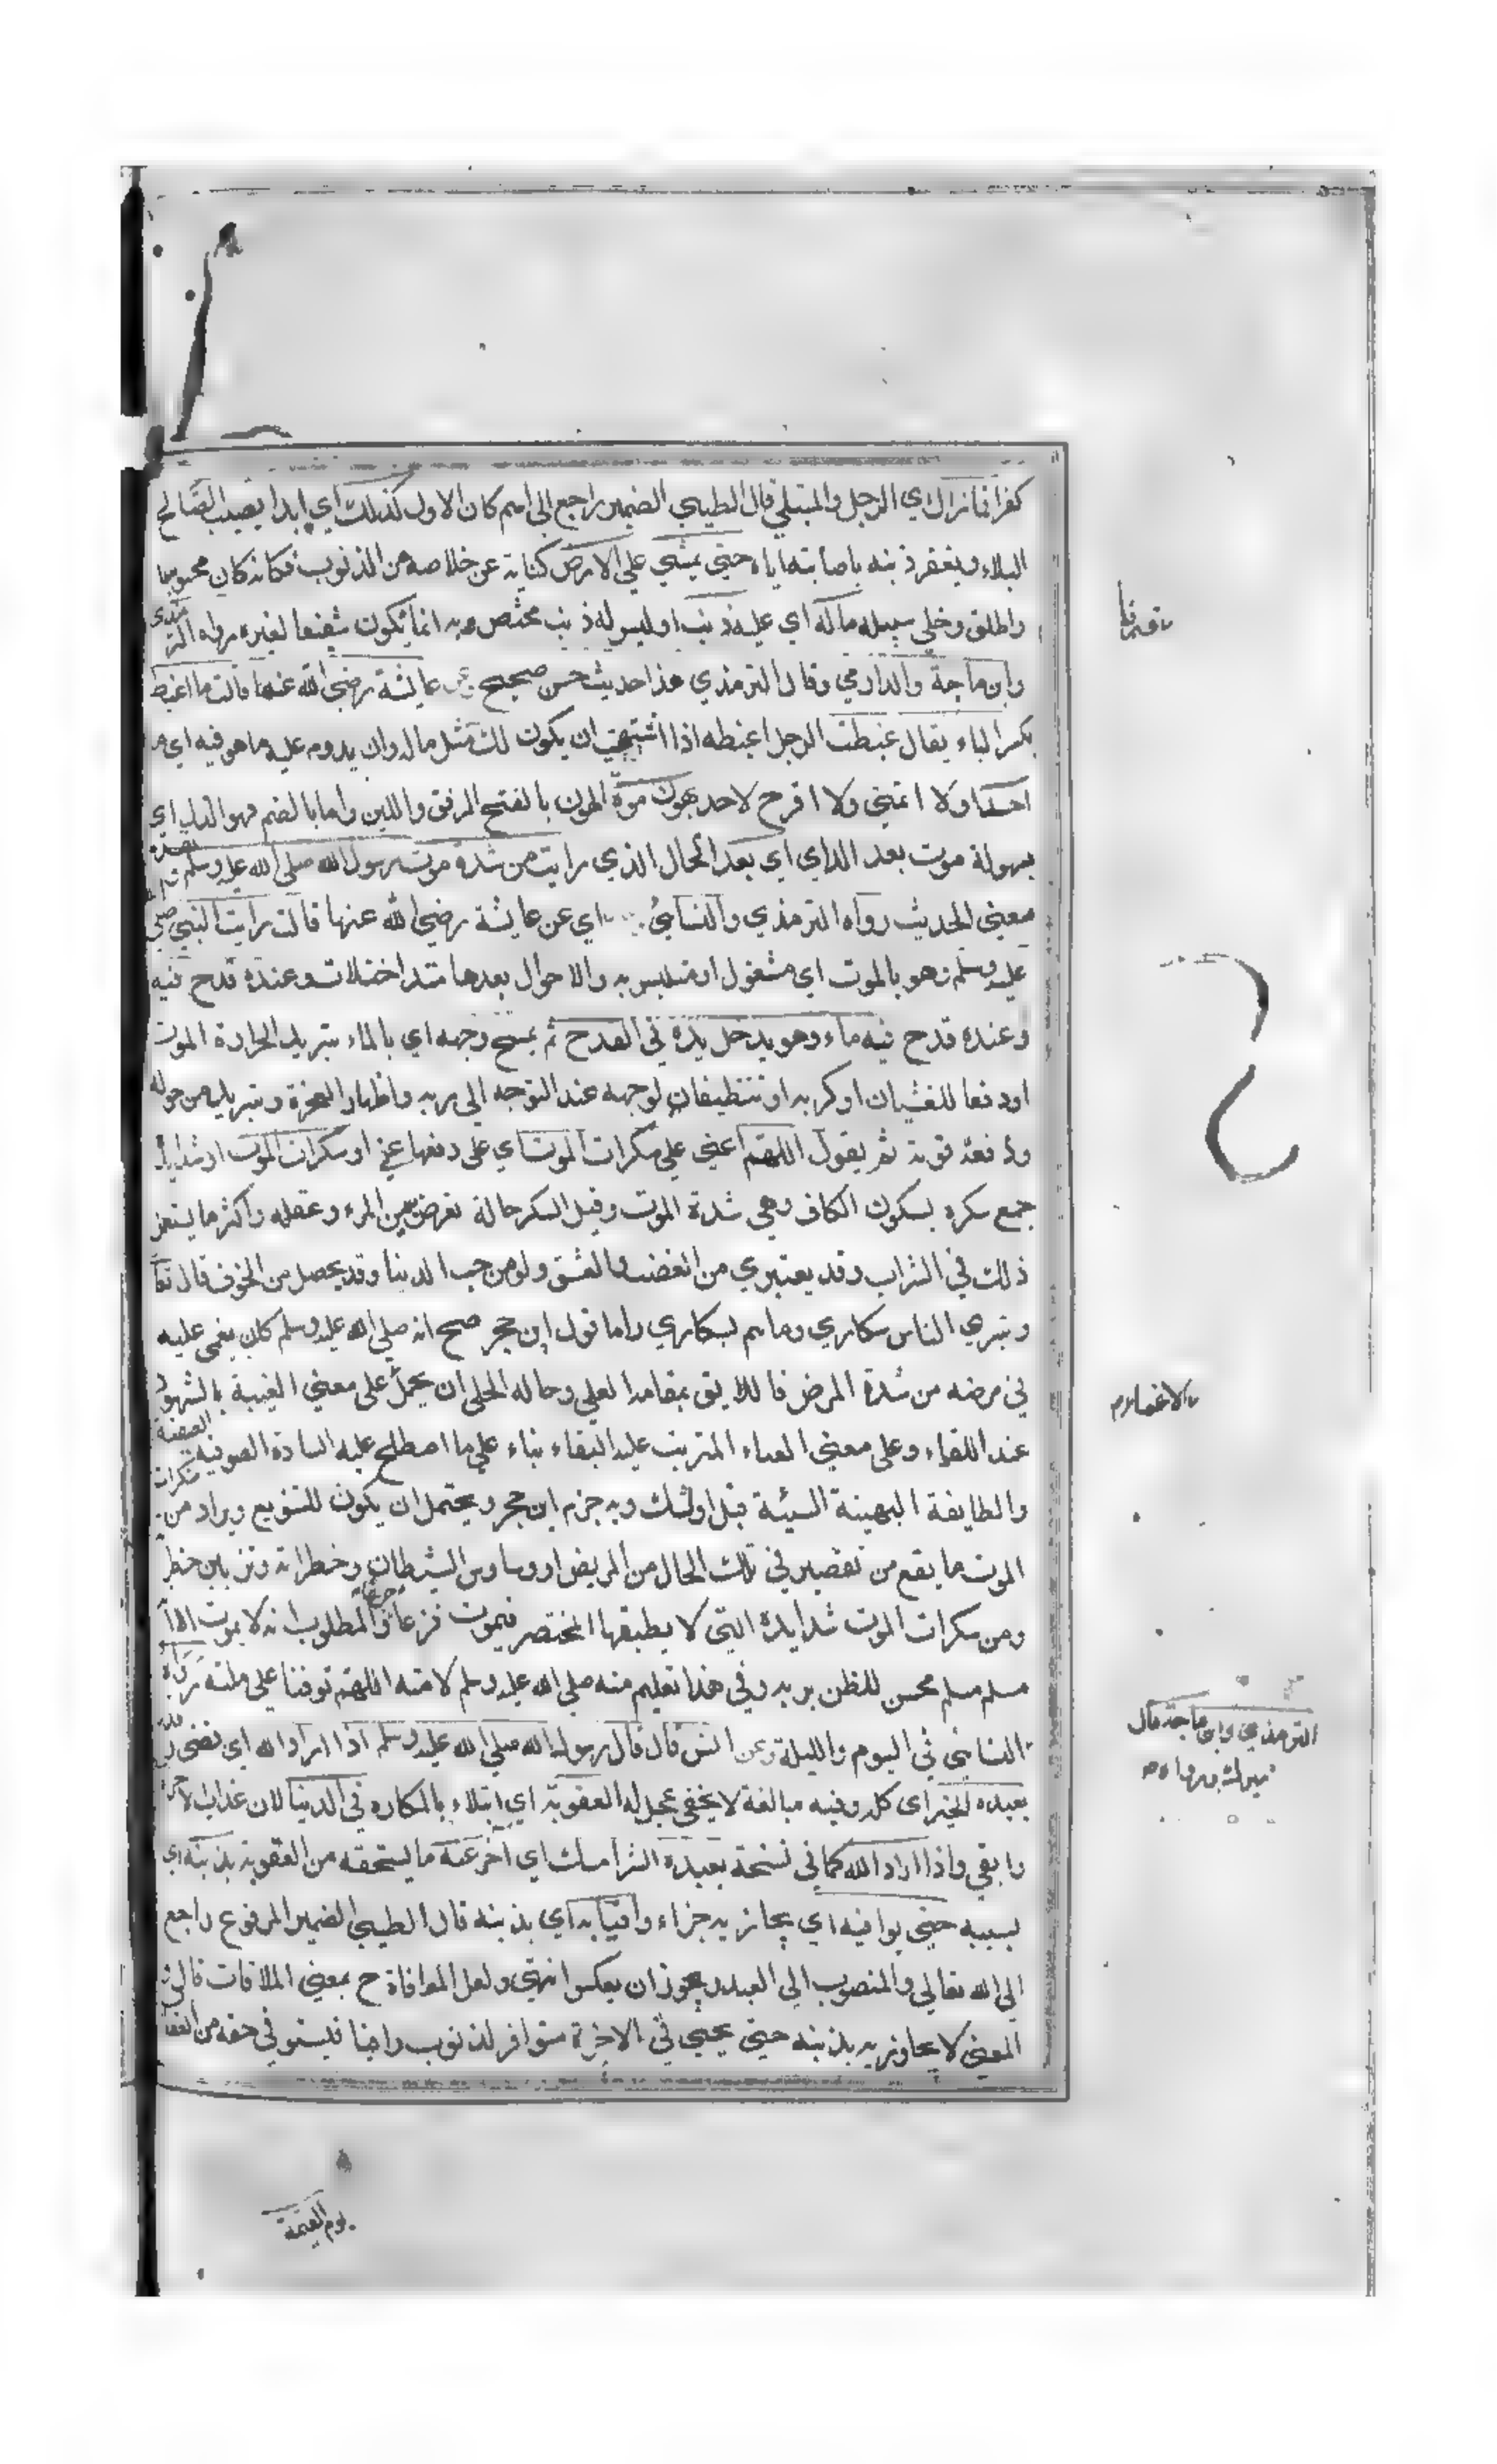 كفرا فما زال اي الرجل والمبتلي قال الطيبي الضمير راجع الي اسم كان الاول كذلك اي ابدا يصيب الصالح
البلاء ويغفر ذنبه باصابته اياه حتي يمشي علي الارض كناية عن خلاصه من الذنوب فكانه كان محبوسا
واطلق وخلي سبيله ماله اي عليه ذنب او ليس له ذنب مختص به انما يكون شفيعا لغيره رواه الترمذي
وابن ماجة والدارمي وقال الترمذي هذا حديث حسن صحيح وعن عايشة رضي الله عنها قالت ما اغبط
بكسر الباء يقال غبطت الرجل اغبطه اذا اشتهيت ان يكون لك مثل ماله وان يدوم عليه ما هو فيه اي ما
احدا ولا اتمني ولا افرح لاحد بهون موة الهون بالفتح الرفق واللين واما بالضم فهو الذل اي
بسهولة موت بعد الذي اي بعد الحال الذي رايت من شدة موت رسول الله صلي الله عليه وسلم
معني الحديث رواه الترمذي والنسائي اي عن عايشة رضي الله عنها قالت رايت النبي صلي
عليه وسلم وهو بالموت اي مشغول او متلبس به والاحوال بعدها متداخلات وعنده قدح فيه
وعنده قدح فيه ماء وهو يدخل يده في القدح ثم يمسح وجهه اي بالماء تبريدا لحرارة الموت
او دفعا للغشيان او كربه او تنظيفا لوجهه عند التوجه الي ربه واظهار العجزة وتبريه من حوله
ودفعه قوته ثم يقول اللهم اعني علي سكرات الموت اي على دفعها عني او سكرات الموت اي شدايد
جمع سكره بسكون الكاف وهي شدة الموت وقيل السكر حالة تعرض بين المرء وعقله واكثر ما يستعمل
ذلك في الشراب وقد يعتري من الغضب والعشق ولو من حب الدينا وقد يحصل من الخوف قال تعا
وتري الناس سكاري وما هم بسكاري واما قول ابن حجر صح انه صلي الله عليه وسلم كان يغمى عليه
في مرضه من شدة المرض فاللايق بمقامه العلي وحاله الجلي ان يحمل على معني الغيبة بالشهود
عند اللقاء وعلى معني الفناء المترتب عليه البقاء بناء علي ما اصطلح عليه السادة الصوفيه الصفية
والطايفة البهيه السنية قبل اولئك وبه جزم ابن حجر ويحتمل ان يكون للتنويع ويراد من سكرات
الموت ما يقع من تقصير في تلك الحال من المريض او وساوس الشيطان وخطراته وتزيين خطر
ومن سكرات الموت شدايده التي لا يطيقها المحتضر فيموت فزعا جزعا والمطلوب انه لا يموت الا
مسلم مسلم محسن للظن بربه وفي هذا تعليم منه صلي الله عليه وسلم لامته اللهم توفنا علي ملته رواه
النسائي في اليوم والليلة وعن انس قال قال رسول الله صلي الله عليه وسلم اذا اراد الله اي قضي
بعبده الخير اي كله وفيه مبالغة لا يخفى عجل له العقوبة اي ابتلاء بالمكاره في الدينا لان عذاب الاخرة
وابقي واذا اراد الله كما في نسخة بعبده الشر امسك اي اخر عنه ما يستحقه من العقوبة بذنبه اي
بسببه حتي يوافيه اي يجازيه جزاء وافيا به اي بذنبه قال الطيبي الضمير المرفوع راجع
الي الله تعالي والمنصوب الي العبد ويجوز ان يعكس انتهي ولعل الموافاة ح بمعني الملاقات قال
المعني لا يجاوزيه بذنبه حتي يجيي في الاخرة متوافر الذنوب وافيا فيستوفي حقه من العقا
الترمذي وابن ماجة قال
ميرك ورواه
يوم القيمة